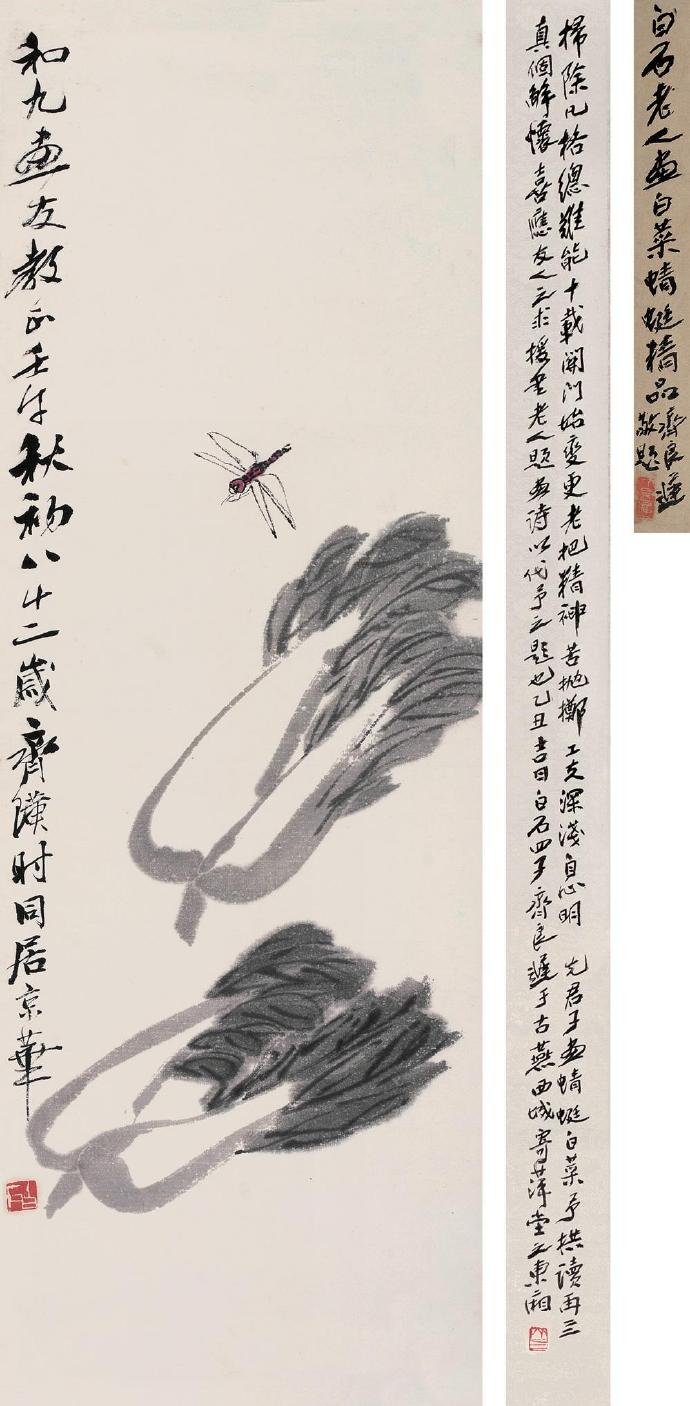 白石老人畫白菜蜻蜓精品
齊良遲
敬題
掃除凡格總難能十載關門始變更老把精神苦拋擲工夫深淺自心明 先君子畫蜻蜓白菜予拱讀再三
真個解懷喜應友人之求援書老人題畫詩以代予之題也乙丑吉日白石四子齊良遲于古燕西城寄萍堂之東廂
和九畫友教正壬午秋初八十二歲齊璜时同居京華
白石